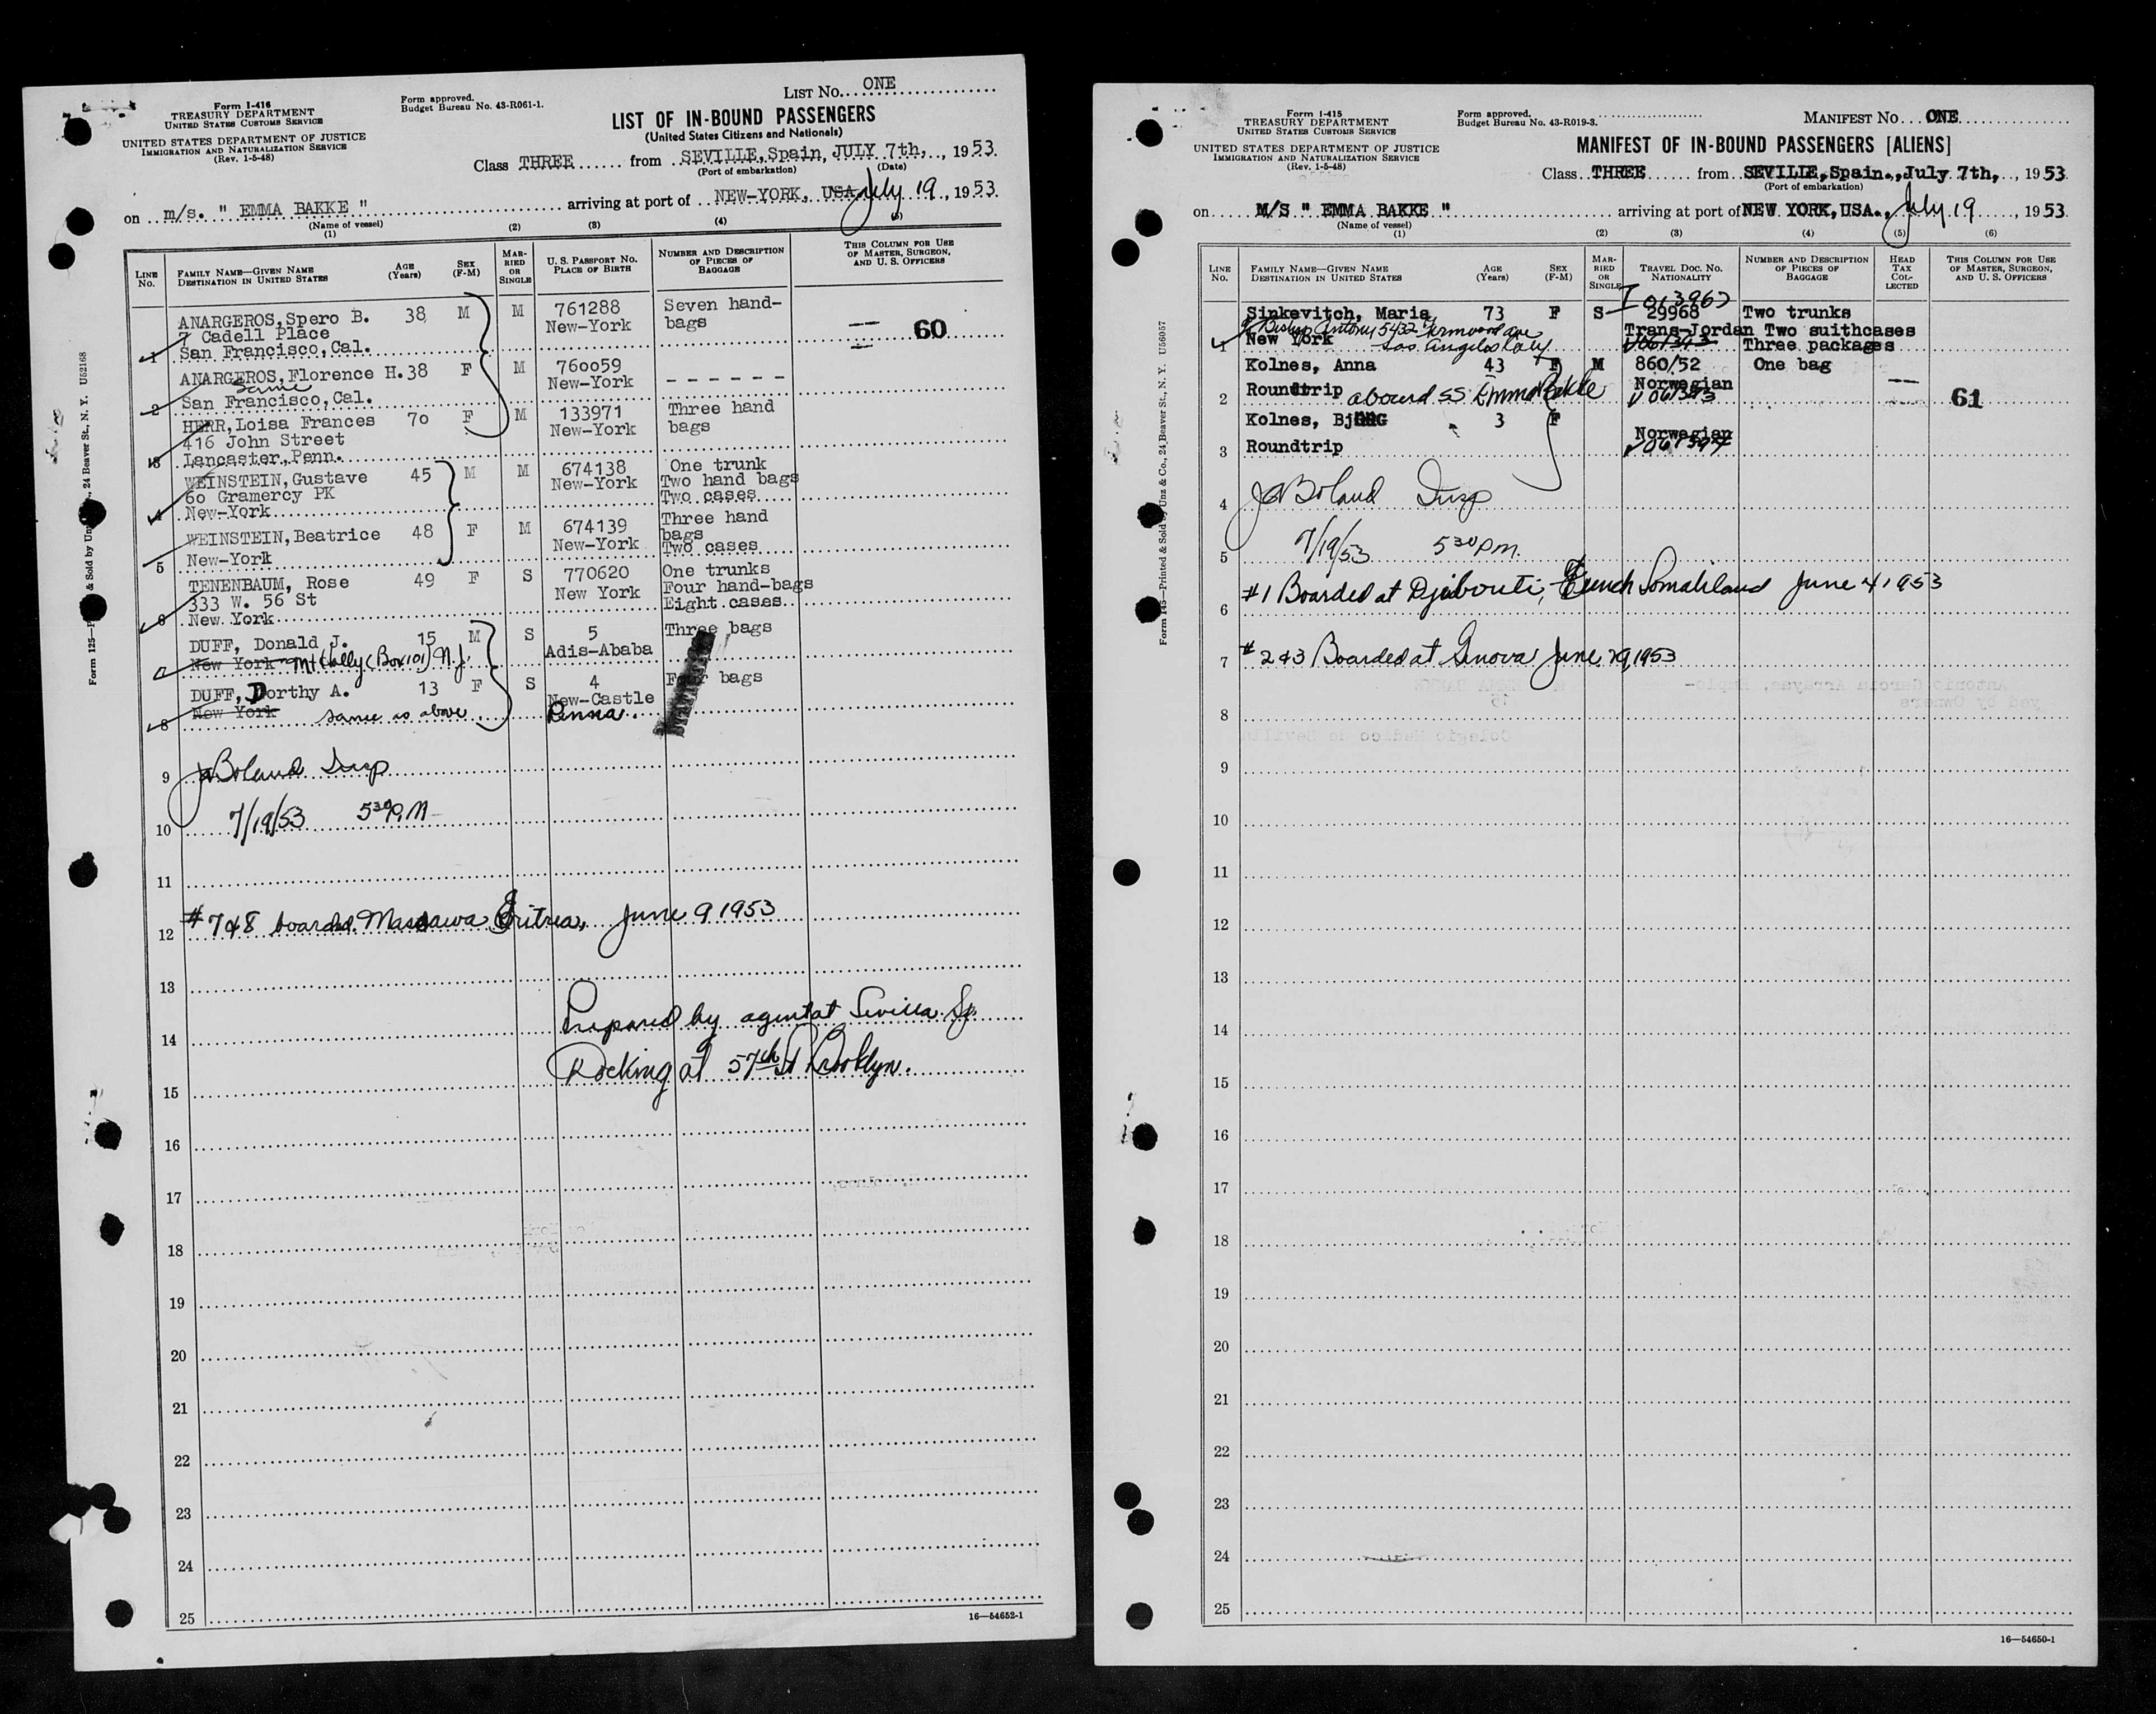 LIST No. ONE
Form I-416
TREASURY DEPARTMENT
UNITED STATES CUSTOMS SERVICE
UNITED STATES DEPARTMENT OF JUSTICE
IMMIGRATION AND NATURALIZATION SERVICE
(Rev. 1-5-48)
Form approved.
Budget Bureau No. 43-R061-1.
LIST OF IN-BOUND PASSENGERS
(United States Citizens and Nationals)
Class THREE from SEVILLE, Spain, JULY 7th, , 1953
(Port of embarkation) (Date)
on m/s. " EMMA BAKKE " arriving at port of NEW-YORK, USA July 19, 1953
(Name of vessel)
(1) (2) (3) (4) (5)
LINE No.
FAMILY NAME—GIVEN NAME
DESTINATION IN UNITED STATES
AGE (Years)
SEX (F-M)
MARRIED OR SINGLE
U. S. PASSPORT NO.
PLACE OF BIRTH
NUMBER AND DESCRIPTION OF PIECES OF BAGGAGE
THIS COLUMN FOR USE OF MASTER, SURGEON, AND U. S. OFFICERS
ANARGEROS, Spero B. 38 M M 761288 Seven hand-
7 Cadell Place New-York bags 60
1 San Francisco, Cal.
ANARGEROS, Florence H. 38 F M 760059 - - - - - -
Same New-York
2 San Francisco, Cal.
HERR, Loisa Frances 70 F M 133971 Three hand
416 John Street New-York bags
3 Lancaster, Penn.
WEINSTEIN, Gustave 45 M M 674138 One trunk
60 Gramercy PK New-York Two hand bags
4 New-York Two cases
WEINSTEIN, Beatrice 48 F M 674139 Three hand
New-York bags
5 New-York Two cases
TENENBAUM, Rose 49 F S 770620 One trunks
333 W. 56 St New York Four hand-bags
6 New York Eight cases
DUFF, Donald J. 15 M S 5 Three bags
7 New York Mt Holly (Box 101) N.J. Adis-Ababa
DUFF, Dorthy A. 13 F S 4 Four bags
8 New York same as above New-Castle
Penna.
9 J Boland Insp
10 7/19/53 5 30 P.M
11
12 #7&8 boarded Massawa Eritrea, June 9 1953
13
14 Prepared by agent at Sevilla Sp.
15 Docking at 57th St Brooklyn.
16
17
18
19
20
21
22
23
24
25
16—54652-1
24 Beaver St., N. Y. U52168
Form I-415
TREASURY DEPARTMENT
UNITED STATES CUSTOMS SERVICE
UNITED STATES DEPARTMENT OF JUSTICE
IMMIGRATION AND NATURALIZATION SERVICE
(Rev. 1-5-48)
Form approved.
Budget Bureau No. 43-R019-3.
MANIFEST No ONE
MANIFEST OF IN-BOUND PASSENGERS [ALIENS]
Class THREE from SEVILLE, Spain., July 7th, , 1953
(Port of embarkation)
on M/S " EMMA BAKKE " arriving at port of NEW YORK, USA., July 19, 1953
(Name of vessel)
(1) (2) (3) (4) (5) (6)
LINE No.
FAMILY NAME—GIVEN NAME
DESTINATION IN UNITED STATES
AGE (Years)
SEX (F-M)
MARRIED OR SINGLE
TRAVEL DOC. NO.
NATIONALITY
NUMBER AND DESCRIPTION OF PIECES OF BAGGAGE
HEAD TAX COLLECTED
THIS COLUMN FOR USE OF MASTER, SURGEON, AND U. S. OFFICERS
Sinkevitch, Maria 73 F S 29968 Two trunks
Bishop Antony, 5432 Fernwood Ave Trans-Jordan Two suithcases
1 New York Los Angeles Calif Three packages
Kolnes, Anna 43 F M 860/52 One bag
2 Roundtrip aboard SS Emma Bakke Norwegian 61
Kolnes, 3 F
3 Roundtrip Norwegian
4 J Boland Insp
5 7/19/53 5 30 P.M.
6 #1 Boarded at Djibouti, French Somaliland June 4 1953
7 #2&3 Boarded at Genova June 29, 1953
8
9
10
11
12
13
14
15
16
17
18
19
20
21
22
23
24
25
16—54650-1
24 Beaver St., N. Y. U56057